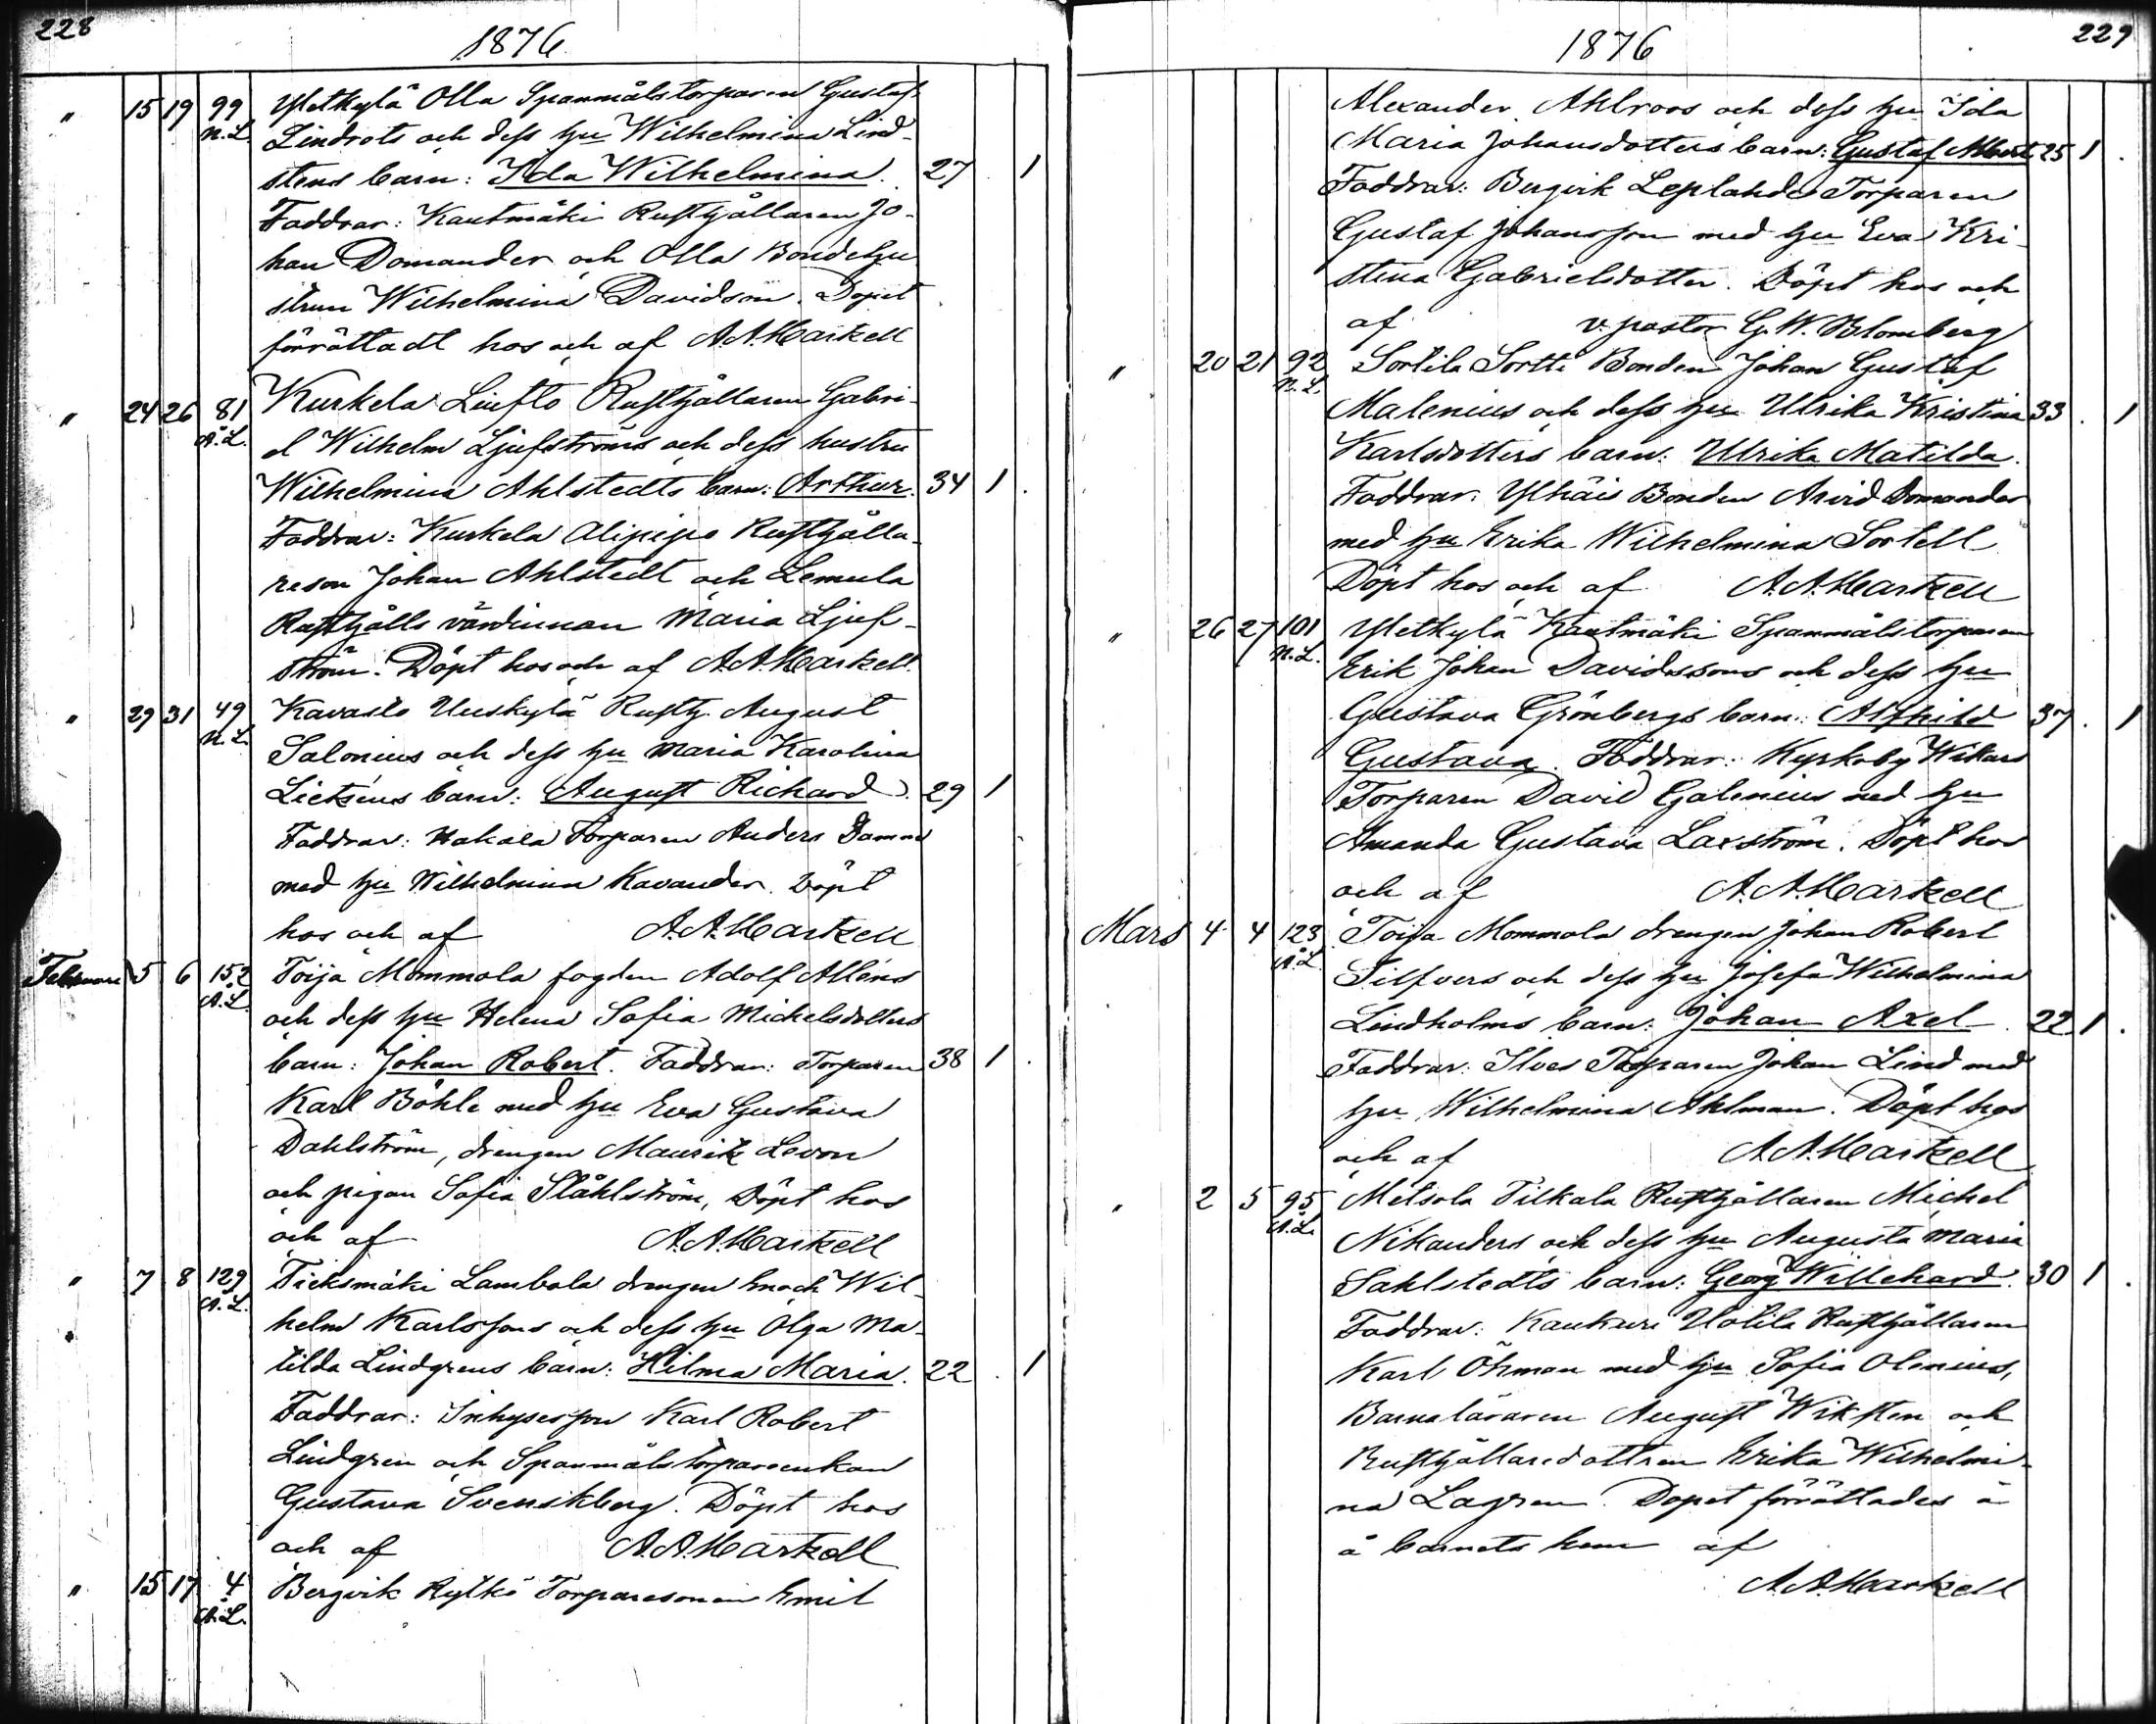 228
1876
" 15 19 99 Yletkylä Olla Spanmåls torparen Gustaf
N.L. Lindrots och dess hu Wilhelmina Lind-
stens barn: Ida Wilhelmina. 27 1
Faddrar: Kautmäki Rusthållaren Jo-
han Domander och Olla Bondehu
strun Wilhelmina Davidson. Dopet
förrättadt hos och af A.A. Markell
" 24 26 81 Kurkela Liufto Rusthållaren Gabri-
Å.L. el Wilhelm Ljufströms och dess hustru
Wilhelmina Ahlstedts barn: Arthur. 34 1
Faddrar: Kurkela Alipipo Rusthålla-
reson Johan Ahlstedt och Lemula
Rusthålls värdinnan Maria Ljuf-
ström. Döpt hos och af A.A. Markell.
" 29 31 49 Kavasto Uuskylä Rusth. August
N.L. Salonius och dess hu Maria Karolina
Lietzéns barn: August Richard. 29 1
Faddrar: Hakala Torparen Anders
med hu Wilhelmina Kavander. Döpt
hos och af A.A. Markell
Februari 5 6 152 Toija Mommola fogden Adolf Alléns
Å.L. och dess hu Helena Sofia Michelsdotters
barn: Johan Robert. Faddrar: Torparen 38 1
Karl Böhle med hu Eva Gustava
Dahlström, drengen Maurits Levon
och pigan Sofia Ståhlström, Döpt hos
och af A.A. Markell
" 7 8 129 Tieksmäki Lambola drengen Enoch Wil-
Å.L. helm Karlssons och dess hu Olga Ma-
tilda Lindgrens barn: Hilma Maria. 22 1
Faddrar: Inhyseson Karl Robert
Lindgren och Spanmåls torpareenkan
Gustava Svenskberg. Döpt hos
och af A.A. Markell
" 15 17 4 Bergvik Rytkö Torparesonen Emil
Å.L.
1876
229
Alexander Ahlroos och dess hu Ida
Maria Johansdotters barn: Gustaf Albert 25 1
Faddrar: Bergvik Leplahde Torparen
Gustaf Johansson med hu Eva Kri-
stina Gabrielsdotter. Döpt hos och
af v. pastor G.W. Blomberg
" 20 21 92 Sortila Sortti Bonden Johan Gustaf
N.L. Malenius och dess hu Ulrika Kristina 33 1
Karlsdotters barn: Ulrika Matilda.
Faddrar: Ylhäis Bonden Arvid Domander
med hu Erika Wilhelmina Sortell
Döpt hos och af A.A. Markell
" 26 27 101 Yletkylä Kautmäki Spanmålstorparen
N.L. Erik Johan Davidssons och dess hu
Gustava Grönbergs barn: Alfhild 37 1
Gustava. Faddrar: Kyrkoby Wikars
Torparen David Galenius med hu
Amanda Gustava Laxström. Döpt hos
och af A.A. Markell
Mars 4 4 123 Toija Mommola drengen Johan Robert
Å.L. Silfvers och dess hu Josefa Wilhelmina
Lindholms barn: Johan Axel. 22 1
Faddrar: Ilves Torparen Johan Lind med
hu Wilhelmina Ahlman. Döpt hos
och af A.A. Markell
" 2 5 95 Metsola Tilkala Rusthållaren Michel
Å.L. Nikanders och dess hu Augusta Maria
Sahlstedts barn: Georg Willehard. 30 1
Faddrar: Kaukuri Uotila Rusthållaren
Karl Öhman med hu Sofia Olenius,
Barnaläraren August Wiksten och
Rusthållaredottren Erika Wilhelmi-
na Lagren. Dopet förrättades å
å barnets hem af
A.A. Markell